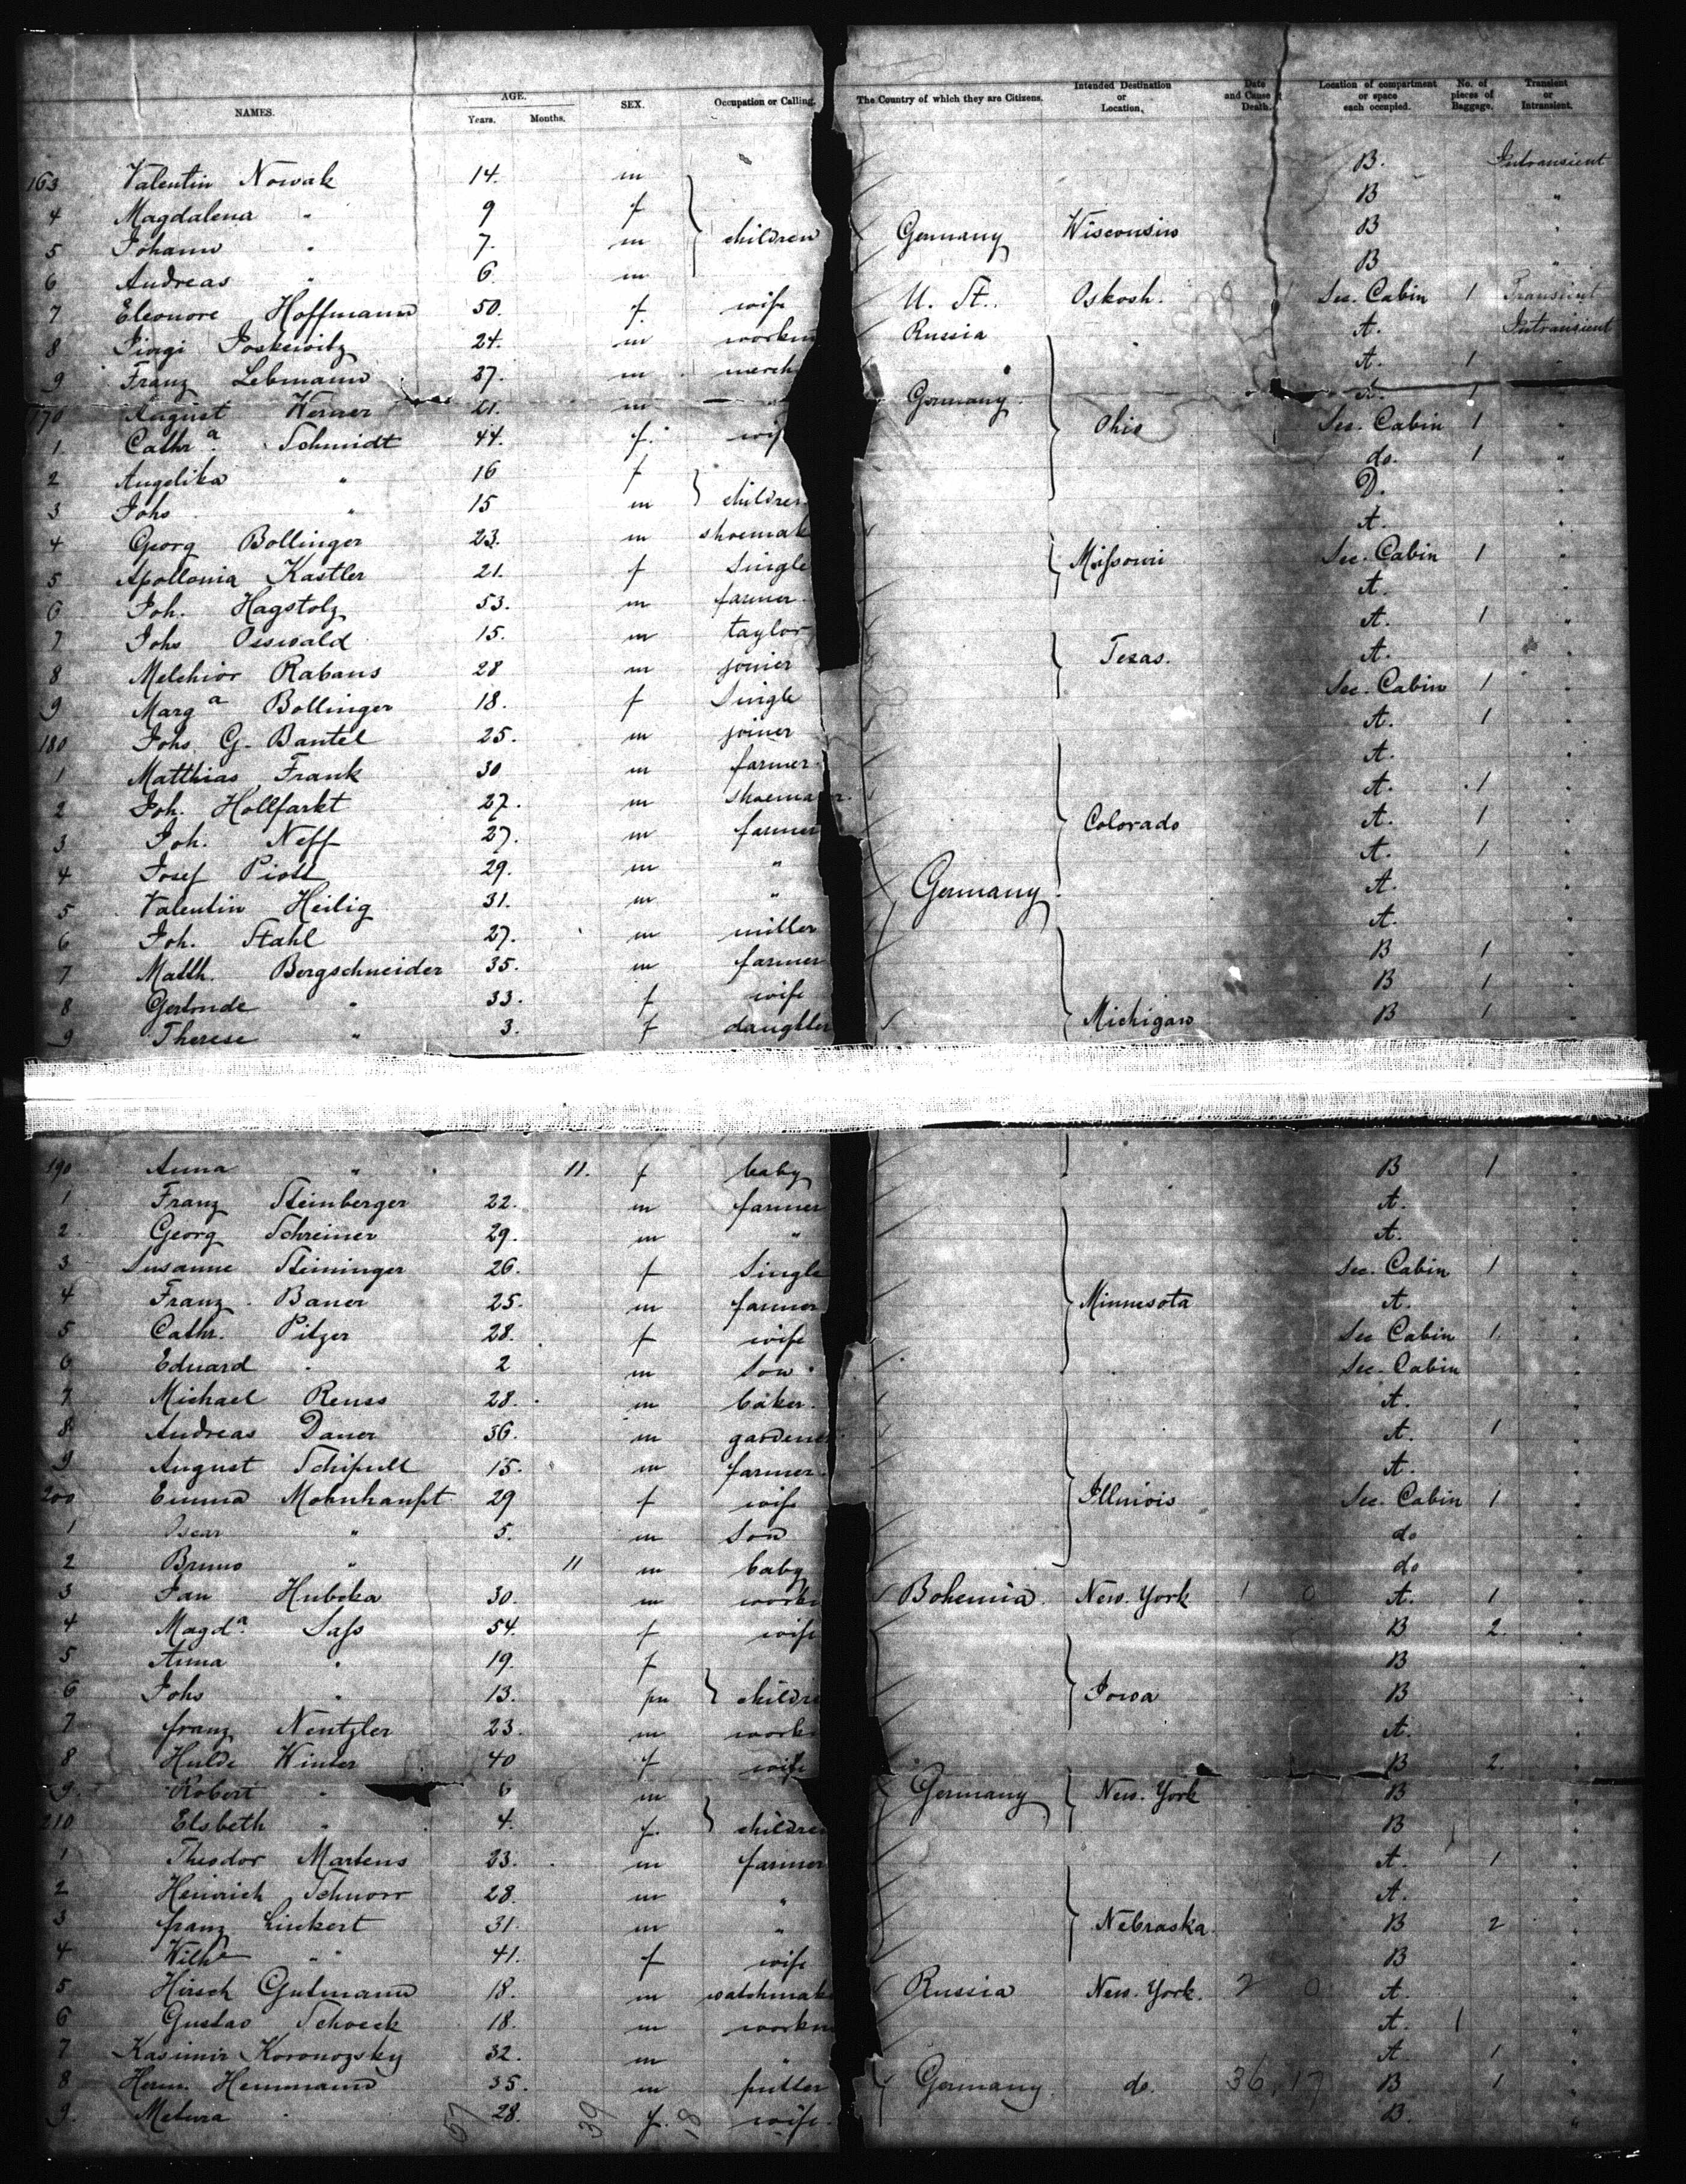 NAMES. AGE. Years. Months. SEX. Occupation or Calling. The Country of which they are Citizens. Intended Destination or Location. Date and Cause Death. Location of compartment or space each occupied. No. of pieces of Baggage. Transient or Intransient.
163 Valentin Nowak 14. m B. Intransient
4 Magdalena " 9 f B "
5 Johann " 7. m children Germany Wisconsin B "
6 Andreas " 6 m B "
7 Eleonore Hoffmann 50. f. wife U. St. Oskosh. Sec. Cabin 1 Transient
8 24. m Russia A. Intransient
9 Franz Lehmann 37. m merch A. 1 "
170 August Werner 21. m Germany A. 1
1 Cathra. Schmidt 44. f. wif Ohio Sec. Cabin 1 "
2 Angelika " 16 f do. 1 "
3 Johs " 15 m children D. "
4 Georg Bollinger 23. m shoemak A. "
5 Apollonia Kastler 21. f Single Missouri Sec. Cabin 1 "
6 Joh. Hagstolz 53. m farmer A. "
7 Johs Osswald 15. m taylor A. 1 "
8 Melchior Rabaus 28 m joiner Texas. A. "
9 Marga Bollinger 18. f Single Sec. Cabin 1 "
180 Johs G. Bantel 25. m joiner A. 1 "
1 Matthias Frank 30 m farmer A. "
2 Joh. Hollfarkt 27. m shoema r. A. 1 "
3 Joh. Neff 27. m farmer Colorado A. 1 "
4 Josef 29. m " A. 1 "
5 Valentin Heilig 31. m " Germany A. "
6 Joh. Stahl 27. m miller A. "
7 Matth. Bergschneider 35. m farmer B 1 "
8 Gertrude " 33. f wife B 1 "
9 Therese " 3. f daughter Michigan B 1 "
190 Anna " 11. f baby B 1 "
1 Franz Steinberger 22. m farmer A. "
2 Georg Schreiner 29. m " A. "
3 Susanne Steininger 26. f Single Sec. Cabin 1 "
4 Franz Bauer 25. m farmer Minnesota A. "
5 Cathr. Pilzer 28. f wife Sec Cabin 1. "
6 Eduard " 2 m son Sec. Cabin "
7 Michael Reuss 28. m baker. A. "
8 Andreas Dauer 36. m gardener A. 1 "
9 August Schipull 15. m farmer A. "
200 Emma Mohnhaupt 29 f wife Illinois Sec. Cabin 1 "
1 Oscar " 5. m son do "
2 Bruno " 11 m baby do "
3 Jan Huboka 30. m work Bohemia. New. York 1 0 A. 1 "
4 Magda. Sass 54. f wife B 2. "
5 Anna " 19. f B "
6 Johs " 13. m childre Iowa B "
7 franz Nentzler 23. m work A. "
8 Hulde Winter 40 f wife B 2. "
9. Robert " 6 m Germany New. York B "
210 Elsbeth " 4. f. children B "
1 Theodor Martens 23. m farmer A. 1 "
2 Heinrich Schnorr 28. m " A. "
3 franz Linkert 31. m " Nebraska B 2 "
4 " 41. f wife B "
5 Hirsch Gutmann 18. m watchmak Russia New. York. 2 0 A. "
6 Gustav Schoeck 18. m work A. 1 "
7 Kasimir Koronozsky 32. m " A. 1 "
8 Herm. Hemmann 35. m Germany. do. 36, 17 B 1 "
9. " 28. f. wife. B. "
57 39 18